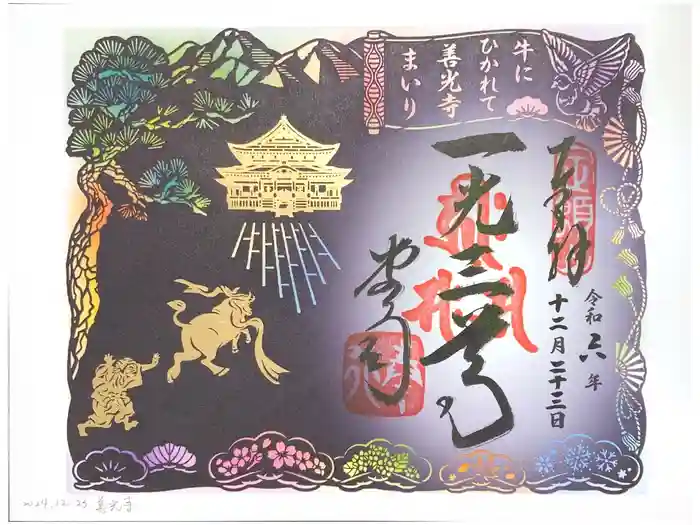 牛に
ひかれて
善光寺
まいり
奉拝
令和六年
十二月二十三日
一光三尊
善光寺
2024.12.23 善光寺